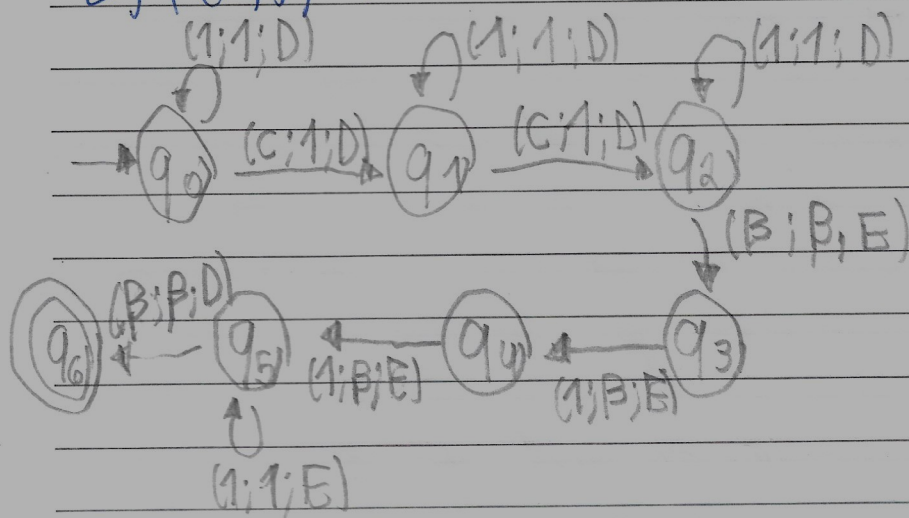 (1;1;D) (1;1;D) (1;1;D)
q0 (C;1;D) q1 (C;1;D) q2
(β;β,E)
q6 (β;β;D) q5 (1;β;E) q4 (1;β;E) q3
(1;1;E)